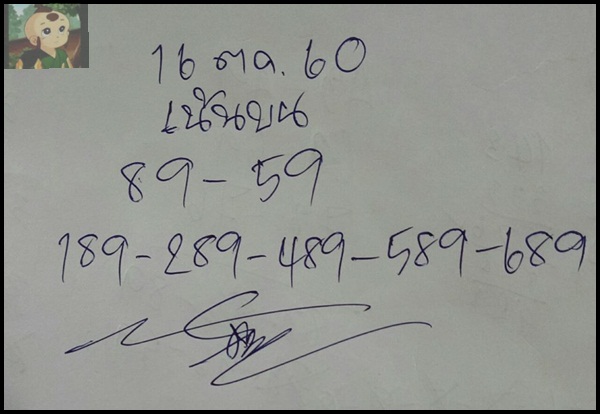 16 ตค. 60
เน้นบน
89 - 59
189 - 289 - 489 - 589 - 689